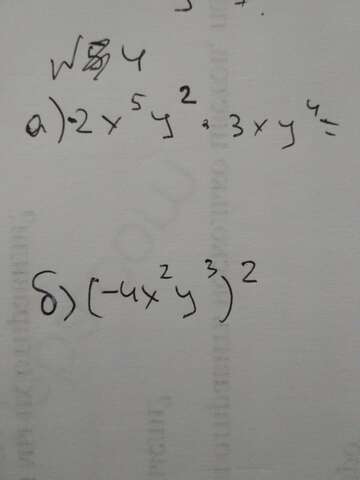 № 4
а) -2x⁵y² · 3xy⁴=
б) (-4x²y³)²